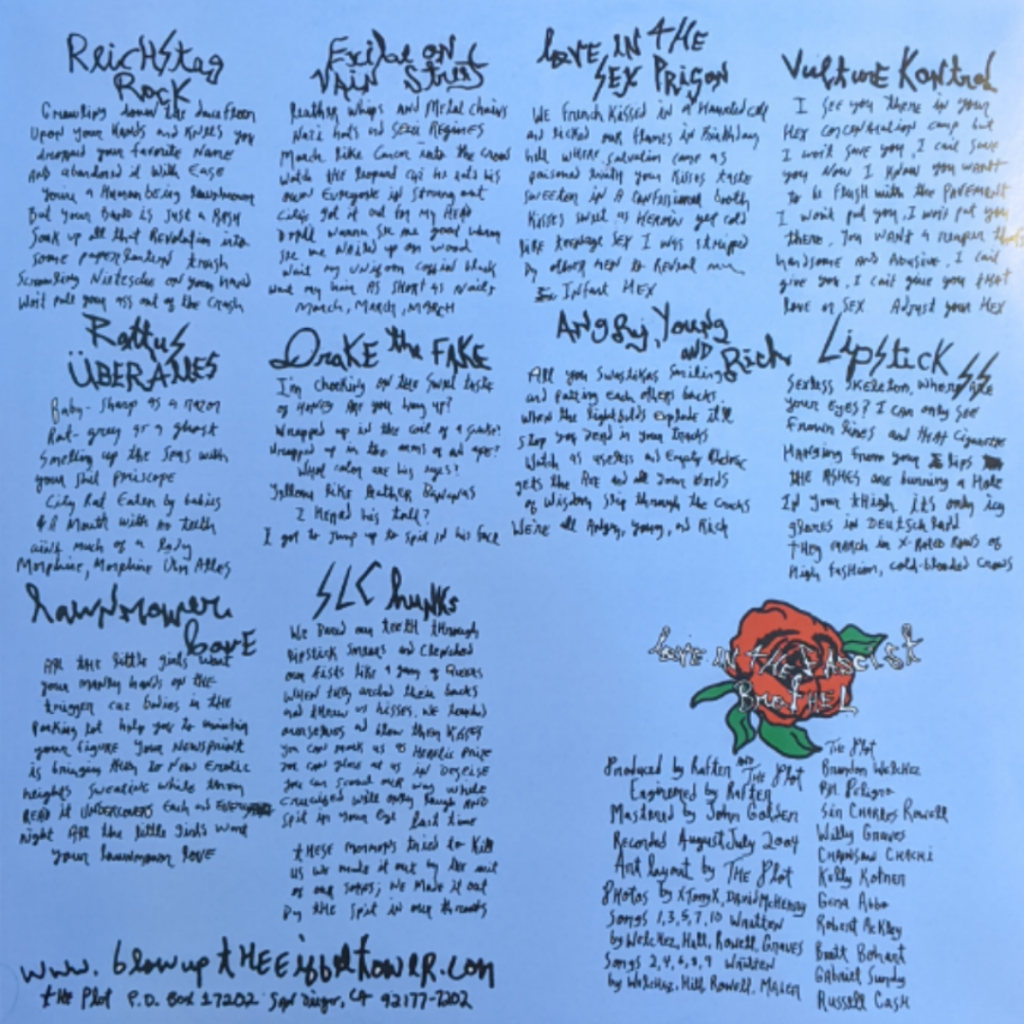 Reichstag
Rock
Crawling down the dancefloor
Upon your Hands and Knees you
dropped your favorite Name
And abandoned it With Ease
You're a Human being lawnmower
But your Band is just a Rash
Soak up all that Revolution into
some paper lantern trash
Scrawling Nietzsche on your hand
Won't pull your ass out of the Crash
Exile on
Vain Street
Leather Whips and Metal chains
Nazi hats and Sexi Regimes
March like Cancer into the crowd
Watch the leopard eat his
own Everyone is strung out
City's got it out for my HEAD
wanna see me
see me Nailed up on wood
my Uniform coffin black
my hair AS SHORT AS Nails
March, March, MARCH
Love IN tHE
SEX PRISON
We French Kissed in a Haunted cell
and licked our flames in Birthday
hell WHERE Salvation came as
poisoned fruity your Kisses taste
sweeter in A confessional booth
Kisses sweet as Heroin get cold
like teenage SEX I was stripped
by other men to Reveal
Infant HEX
Vulture Kontrol
I see you there in your
HEX concentration camp but
I won't save you, I can't save
you Now I Know you WANT
to be flush with the PAVEMENT
I won't put you, I won't put you
there, You WANT a reaper that's
handsome AND Abusive, I can't
give you, I can't give you tHAT
Love or SEX Adjust your HEX
Rattus
ÜBER ALLES
Baby- sharp as a razor
Rat- grey as a ghost
Smelling up the Seas with
your shit periscope
City Rat Eaten by babies
Mouth with no teeth
ain't much of a lady
Morphine, Morphine Über Alles
Drake the FAKE
I'm choking on the sweet taste
of HONEY Are you hung up?
Wrapped up in the coil of a snake?
Wrapped up in the arms of an ape?
What color are his eyes?
Yellow like leather Bananas
I Heard his tall?
I got to jump up to spit in his face
Angry, Young
AND Rich
All you Swastikas Smiling
and patting each others backs
When the lightbulbs explode it'll
stop you dead in your tracks
Watch as useless and Empty Rhetoric
gets the Axe and all your Words
of Wisdom slip through the cracks
We're all Angry, young, and Rich
Lipstick SS
Sexless Skeleton, Where Are
your eyes? I can only see
Frown lines and Hot Cigarette
Hanging from your lips
The ASHES are burning a Hole
In your tHigh its only icy
graves in Deutschland
They march in X-Rated Rows of
High Fashion, cold-blooded Crows
Lawnmower
Love
All the little girls want
your manly hands on the
trigger car bodies in the
parking lot help you to maintain
your figure Your Newsprint
is bringing them to New Erotic
heights Sweatin white
READ it UNDERCOVERS Each and Every
night All the little girls want
your lawnmower love
SLC hunks
We bared our teeth through
lipstick smears and Clenched
our fists like a gang of Queers
When they arched their backs
and threw us hisses, WE leaned
ourselves and blew them Kisses
You can mark us as Heretic
You can glare at us in
You can scowl our way while
Crucified we'll only laugh AND
spit in your Eye last time
tHESE mormons tried to Kill
us we made it out by the
of our; We Made it out
By the Spit in our throats
Love in the Fascist
Brothel
Produced by Rafter AND The Plot
Engineered by Rafter
Mastered by John Golden
Recorded August/July 2004
Art layout by THE Plot
Photos by XTonyX, David McHenry
Songs 1,3,5,7,10 Written
by Welchez, Hill, Rowell, Graves
Songs 2,4,6,8,9 Written
by Welchez, Hill, Rowell, Maier
The Plot
Brandon Welchez
Pat Peligro
Sir Charles Rowell
Willy Graves
CHAINSAW CHACHI
Kelly Kotner
Gina Abbo
Robert Ackley
Brett Bohart
Gabriel Sundy
Russell Cash
www.blowuptHEEiffeltower.com
tHE Plot P.O. Box 17202 San Diego, CA 92177-7202